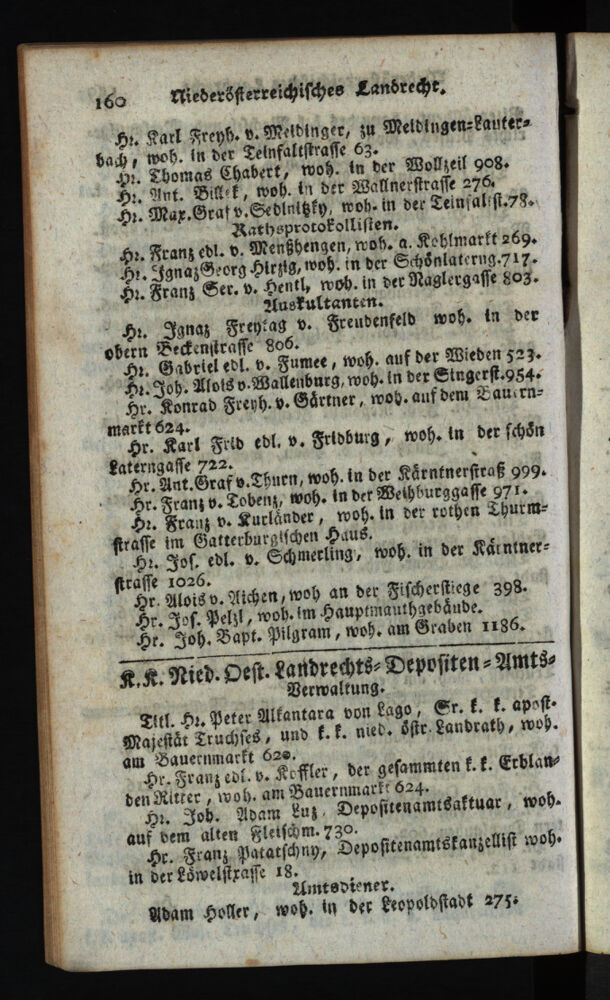 160 Niederösterreichisches Landrecht.
Hr. Karl Freyh. v. Meldinger, zu Meldingen=Lauter=
bach, woh. in der Teinfaltstrasse 63.
Hr. Thomas Chabert, woh. in der Wollzeil 908.
Hr. Ant. Billek, woh. in der Wallnerstrasse 276.
Hr. Max. Graf v. Sedlnitzky, woh. in der Teinfaltst. 78.
Rathsprotokollisten.
Hr. Franz edl. v. Menßhengen, woh. a. Kohlmarkt 269.
Hr. Ignaz Georg Hirzig, woh. in der Schönlaterng. 717.
Hr. Franz Ser. v. Hentl, woh. in der Naglergasse 803.
Auskultanten.
Hr. Ignaz Freytag v. Freudenfeld woh. in der
obern Beckenstrasse 806.
Hr. Gabriel edl. v. Fumee, woh. auf der Wieden 523.
Hr. Joh. Alois v. Wallenburg, woh. in der Singerst. 954.
Hr. Konrad Freyh. v. Gärtner, woh. auf dem Bauern=
markt 624.
Hr. Karl Frid edl. v. Fridburg, woh. in der schön
Laterngasse 722.
Hr. Ant. Graf v. Thurn, woh. in der Kärntnerstraß 999.
Hr. Franz v. Tobenz, woh. in der Weihburggasse 971.
Hr. Franz v. Kurländer, woh. in der rothen Thurm=
strasse im Gatterburgischen Haus.
Hr. Jos. edl. v. Schmerling, woh. in der Kärntner=
strasse 1026.
Hr. Alois v. Aichen, woh an der Fischerstiege 398.
Hr. Jos. Pelzl, woh. im Hauptmauthgebäude.
Hr. Joh. Bapt. Pilgram, woh. am Graben 1186.
K. K. Nied. Oest. Landrechts=Depositen=Amts=
Verwaltung.
Titl. Hr. Peter Alkantara von Lago, Sr. k. k. apost.
Majestät Truchses, und k. k. nied. östr. Landrath, woh.
am Bauernmarkt 620.
Hr. Franz edl. v. Koffler, der gesammten k. k. Erblan=
den Ritter, woh. am Bauernmarkt 624.
Hr. Joh. Adam Luz, Depositenamtsaktuar, woh.
auf dem alten Fleischm. 730.
Hr. Franz Patatschny, Depositenamtskanzellist woh.
in der Löwelstrasse 18.
Amtsdiener.
Adam Holler, woh. in der Leopoldstadt 275.